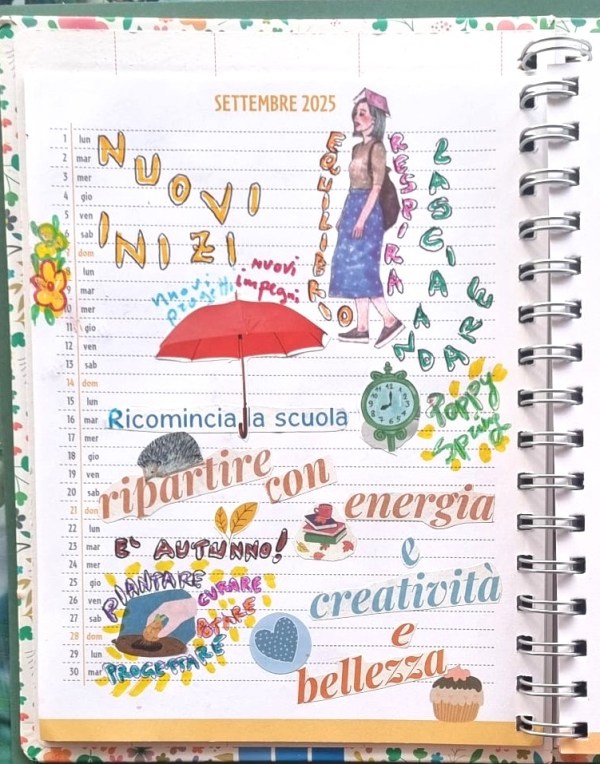 SETTEMBRE 2025
1 lun
2 mar
3 mer
4 gio
5 ven
6 sab
dom
lun
mar
mer
11 gio
12 ven
13 sab
14 dom
15 lun
16 mar
17 mer
18 gio
19 ven
20 sab
21 dom
22 lun
23 mar
24 mer
25 gio
26 ven
27 sab
28 dom
29 lun
30 mar
NUOVI
INIZI
EQUILIBRIO
RESPIRA
LASCIA
ANDARE
nuovi
progetti
nuovi
impegni
Ricomincia la scuola
Poppy
ripartire con
energia
E' AUTUNNO!
e
creatività
e
bellezza
PIANTARE
CURARE
PROGETTARE